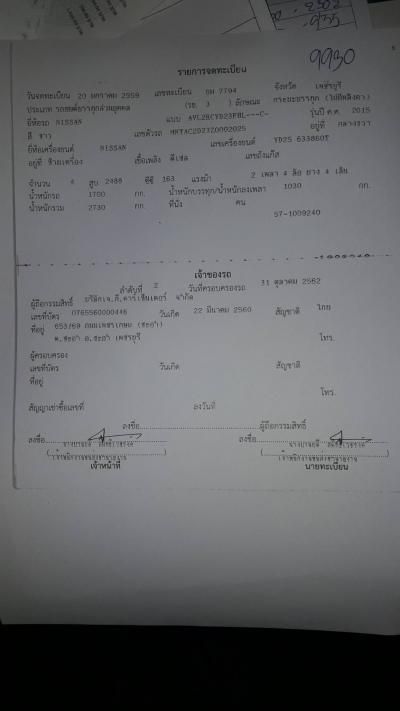 9930
รายการจดทะเบียน
วันจดทะเบียน 20 มกราคม 2559 เลขทะเบียน 7794 จังหวัด เพชรบุรี
ประเภท รถยนต์บรรทุกส่วนบุคคล (รย. 3 ) ลักษณะ กระบะบรรทุก
ยี่ห้อรถ NISSAN แบบ รุ่นปี ค.ศ. 2015
สี ขาว เลขตัวรถ MNTAC2D23Z0002025 อยู่ที่ กลางขวา
ยี่ห้อเครื่องยนต์ NISSAN เลขเครื่องยนต์ YD25 633860T
อยู่ที่ ซ้ายเครื่อง เชื้อเพลิง ดีเซล เลขถังแก๊ส
จำนวน 4 สูบ 2488 ซีซี 163 แรงม้า 2 เพลา 4 ล้อ ยาง 4 เส้น
น้ำหนักรถ 1700 กก. น้ำหนักบรรทุก/น้ำหนักลงเพลา 1030 กก.
น้ำหนักรวม 2730 กก. ที่นั่ง คน
57-1009240
เจ้าของรถ
ลำดับที่ 2 วันที่ครอบครองรถ 31 ตุลาคม 2562
ผู้ถือกรรมสิทธิ์ บริษัทเจ.ที.คาร์เซ็นเตอร์ จำกัด
เลขที่บัตร 0765560000446 วันเกิด 22 มีนาคม 2560 สัญชาติ ไทย
ที่อยู่ 653/69 ถนนเพชรเกษม (ชะอำ)
ต.ชะอำ อ.ชะอำ เพชรบุรี โทร.
ผู้ครอบครอง
เลขที่บัตร วันเกิด สัญชาติ
ที่อยู่
โทร.
สัญญาเช่าซื้อเลขที่ ลงวันที่
ลงชื่อ ผู้ถือกรรมสิทธิ์
ลงชื่อ ลงชื่อ
เจ้าหน้าที่ นายทะเบียน